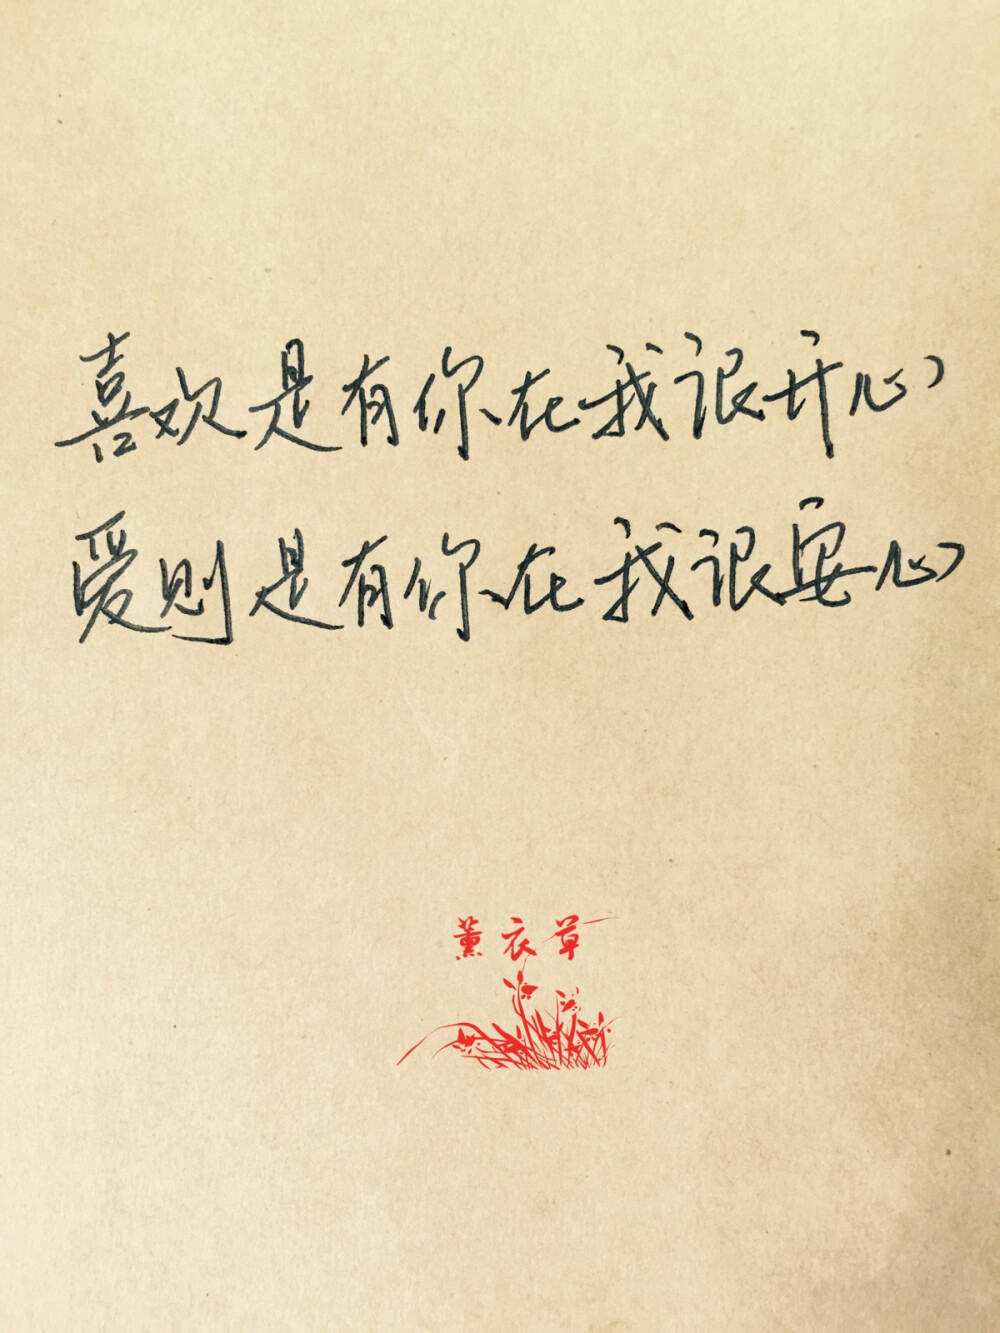 喜欢是有你在我很开心
爱则是有你在我很安心
薰衣草